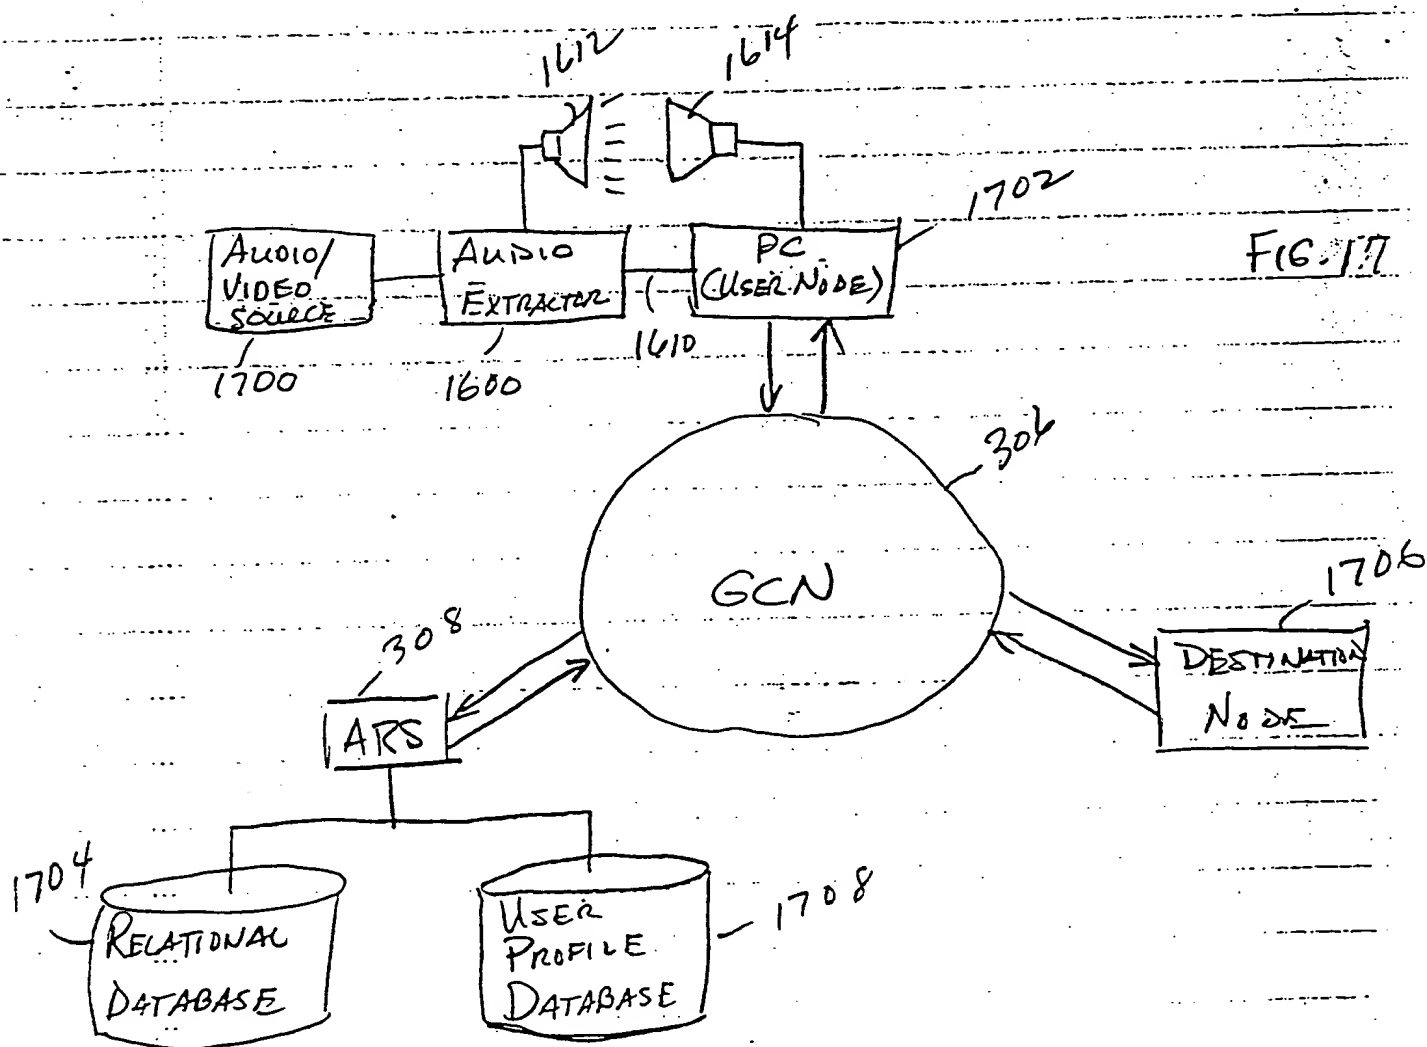 1612
1614
1702
FIG. 17
AUDIO/
VIDEO
SOURCE
AUDIO
EXTRACTOR
PC
(USER NODE)
1700
1600
1610
306
GCN
1706
308
DESTINATION
NODE
ARS
1704
1708
RELATIONAL
DATABASE
USER
PROFILE
DATABASE